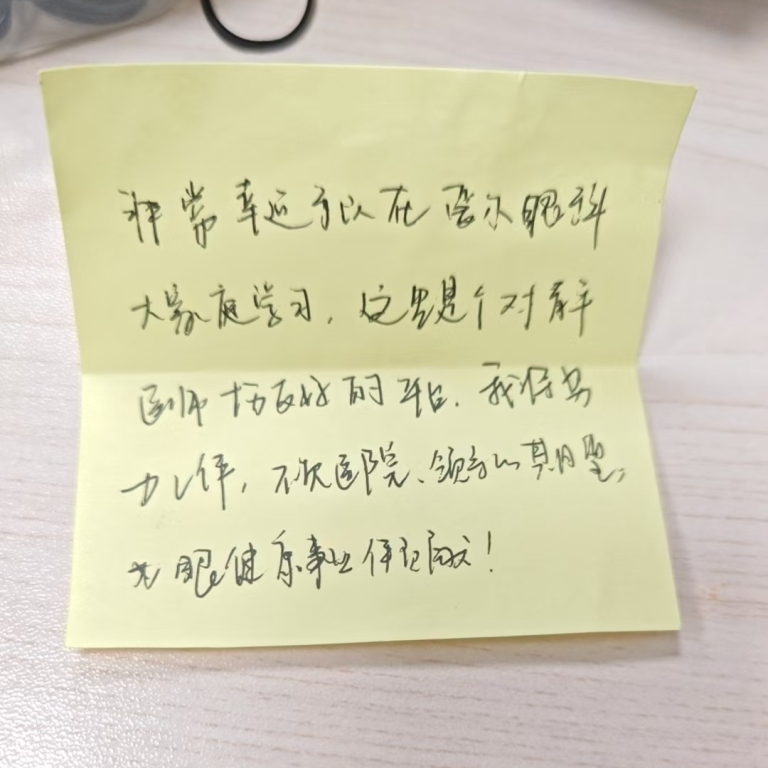 非常幸运可以在爱尔眼科
大家庭学习,这里是个对青年
医师十分友好的平台.我将努
力工作,不负医院、领导的期望,
为眼健康事业作出贡献!